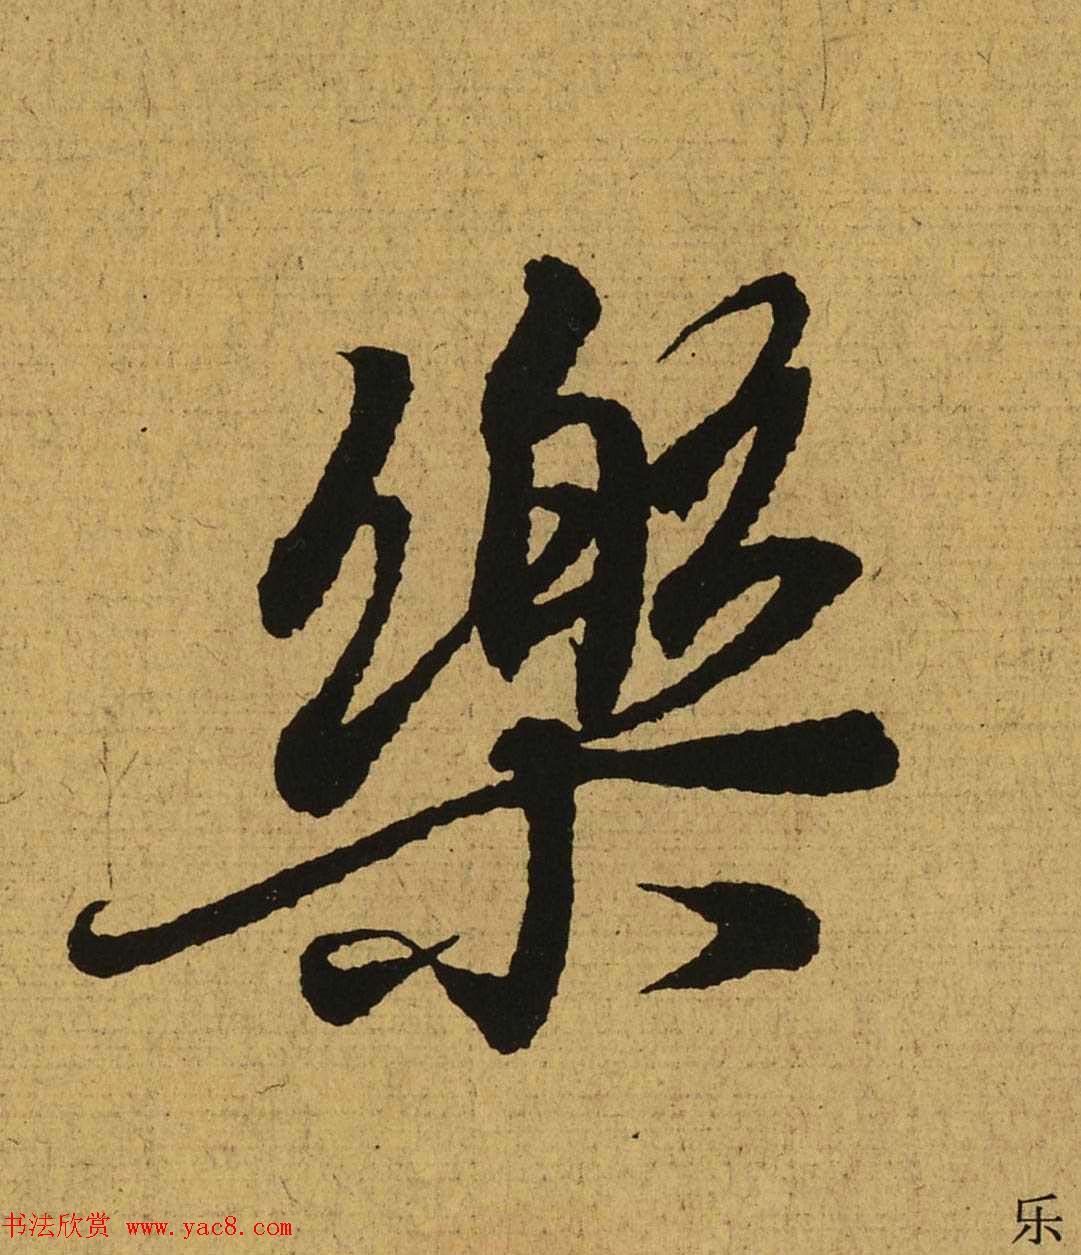 樂
乐
书法欣赏 www.yac8.com